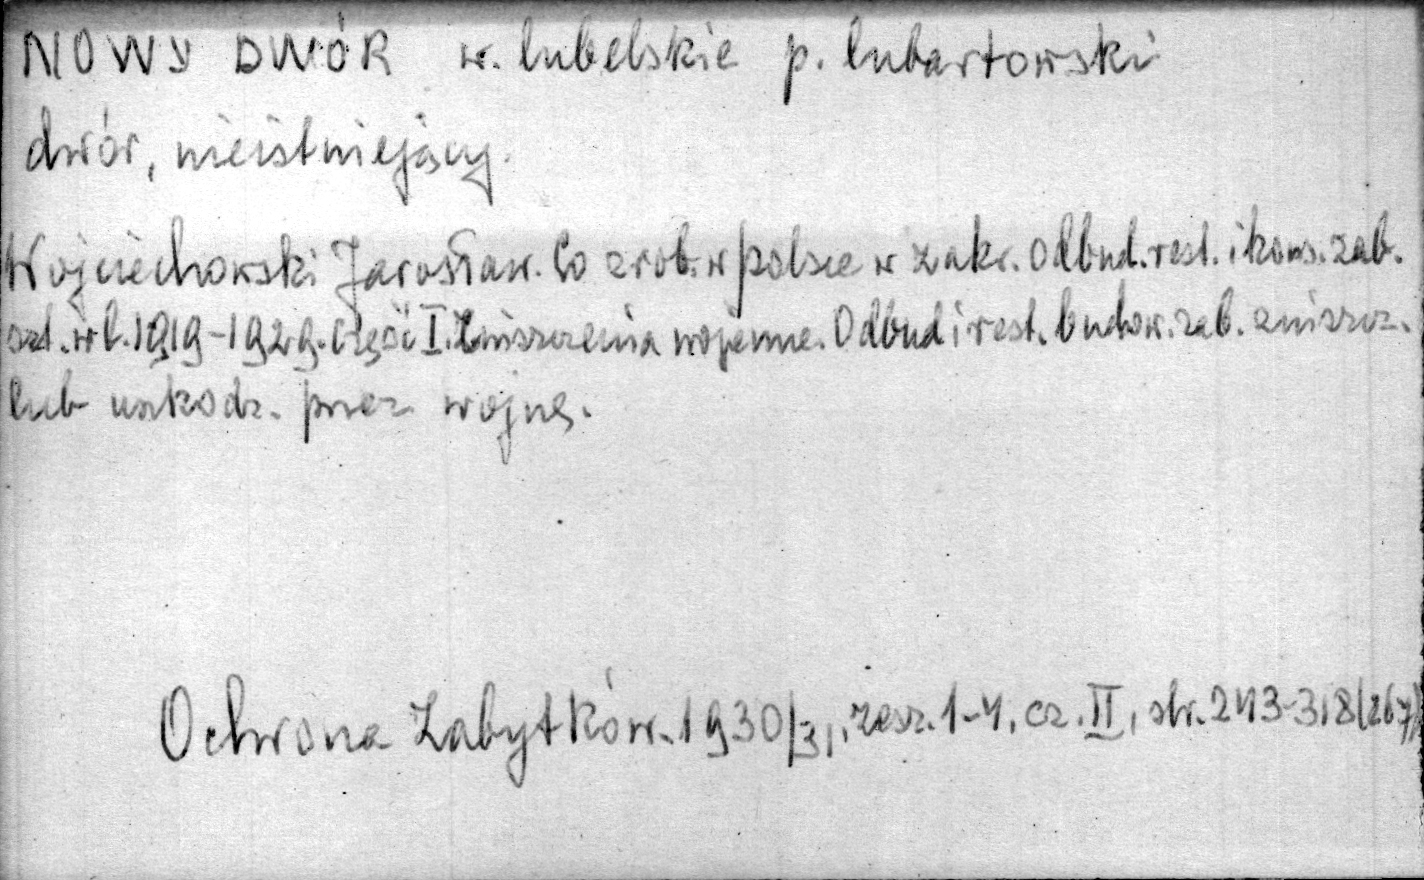 NOWY DWÓR w. lubelskie p. lubartowski
dwór, nieistniejący.
Wojciechowski Jarosław. Co zrob. w Polsce w zakr. Odbud. rest. i kons. zab.
szt. w l. 1919-1929. Część I. Zniszczenia wojenne. Odbud i rest. budow. zab. zniszcz.
lub uszkodz. przez wojnę.
Ochrona Zabytków. 1930/31, zesz. 1-4, cz. II, str. 243-318 (267)